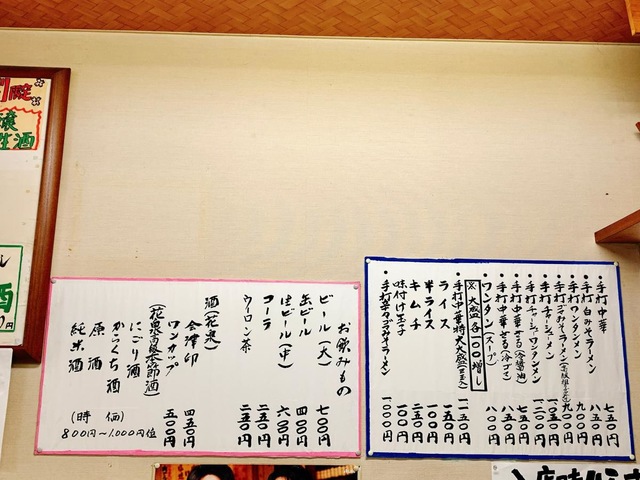 ・手打中華 七五〇円
・手打白みそラーメン 八五〇円
・手打ワンタンメン 九〇〇円
ラーメン 九〇〇円
・手打チャーシューメン 一〇五〇円
・手打チャーシューワンタンメン 一二〇〇円
・手打中華ざる(冷醤油) 七五〇円
・手打中華ざる(冷ゴマ) 八五〇円
ワンタン(スープ) 八〇〇円
※大盛各一〇〇増し
・手打中華特大盛 一一五〇円
ライス 一五〇円
半ライス 一〇〇円
キムチ 二五〇円
味付け玉子 一〇〇円
みそラーメン 一〇〇〇円
お飲みもの
ビール(大) 七〇〇円
缶ビール 四〇〇円
生ビール(中) 六〇〇円
コーラ 二五〇円
ウーロン茶 二五〇円
酒(花泉)
会津印 四五〇円
ワンカップ 五〇〇円
にごり酒
からくち酒
原酒
純米酒
(時価)
800円〜1,000円位